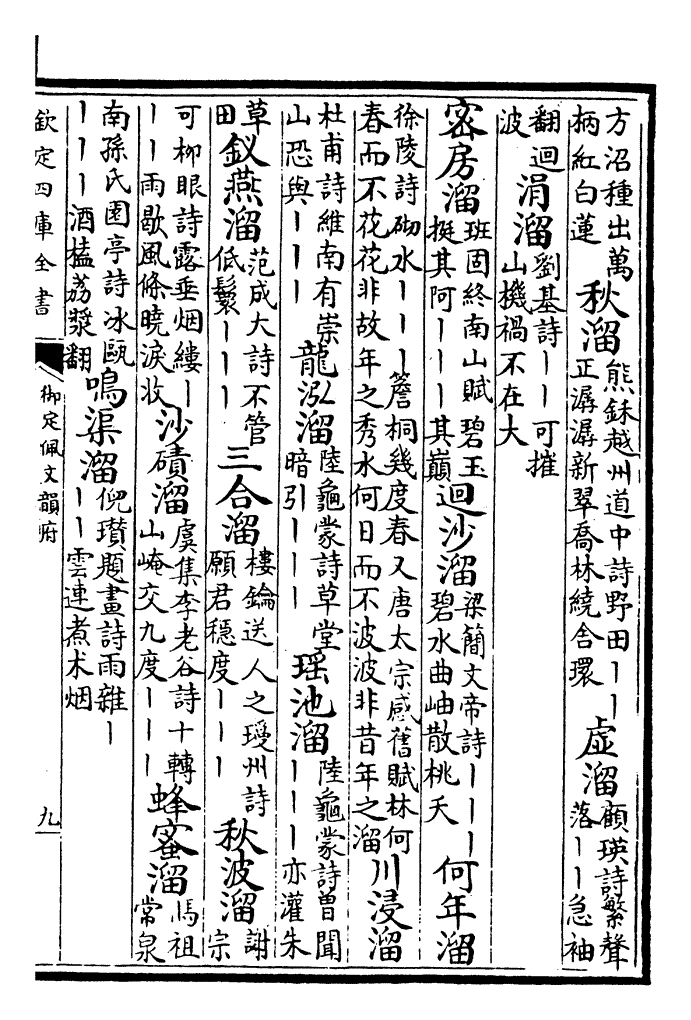 方沼種出萬柄紅白蓮 秋溜 熊鉌越州道中詩野田丨丨正潺潺新翠喬林繞舍環 虛溜 顧瑛詩繁聲落丨丨急袖
翻迴波 涓溜 劉基詩丨丨可摧山機禍不在大
密房溜 班固終南山賦碧玉挺其阿丨丨丨其巔 迴沙溜 梁簡文帝詩丨丨丨碧水曲岫散桃夭 何年溜
徐陵詩砌水丨丨丨簷桐幾度春又唐太宗感舊賦林何春而不花花非故年之秀水何日而不波波非昔年之溜 川浸溜
杜甫詩維南有崇山恐與丨丨丨 龍泓溜 陸龜蒙詩草堂暗引丨丨丨 瑤池溜 陸龜蒙詩曽聞丨丨丨亦灌朱
草田 釵燕溜 范成大詩不管低鬟丨丨丨 三合溜 樓鑰送人之璦州詩願君穩度丨丨丨 秋波溜 謝宗
可柳眼詩露垂烟縷丨丨丨雨歇風條曉淚收 沙磧溜 虞集李老谷詩十轉山崦交九度丨丨丨 蜂蜜溜 馬祖常泉
南孫氏園亭詩冰甌丨丨丨酒榼荔漿翻 鳴渠溜 倪瓚題畫詩雨雜丨丨丨雲連煮术烟
欽定四庫全書
御定佩文韻府
九